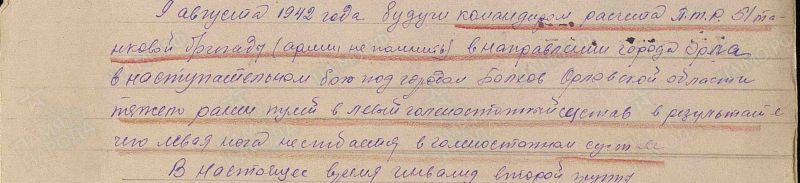 9 августа 1942 года будучи командиром расчета П.т.Р. 51 та-
нковой бригады (армии не помнить) в направлении города Орла
в наступательном бою под городом Болхов Орловской области
тяжело ранен пулей в левый голеностопный сустав в результате
чего левая нога не сгибается в голеностопном суставе
В настоящее время инвалид второй группы